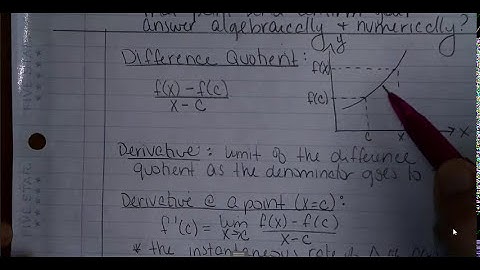 answer algebraically & numerically?
Difference Quotient:
f(x) - f(c)
x - c
y
f(x)
f(c)
c x x
Derivative: limit of the difference
quotient as the denominator goes to
Derivative @ a point (x=c):
f'(c) = lim f(x) - f(c)
x→c x-c
* the instantaneous rate of
FIVE STAR
FIVE STAR